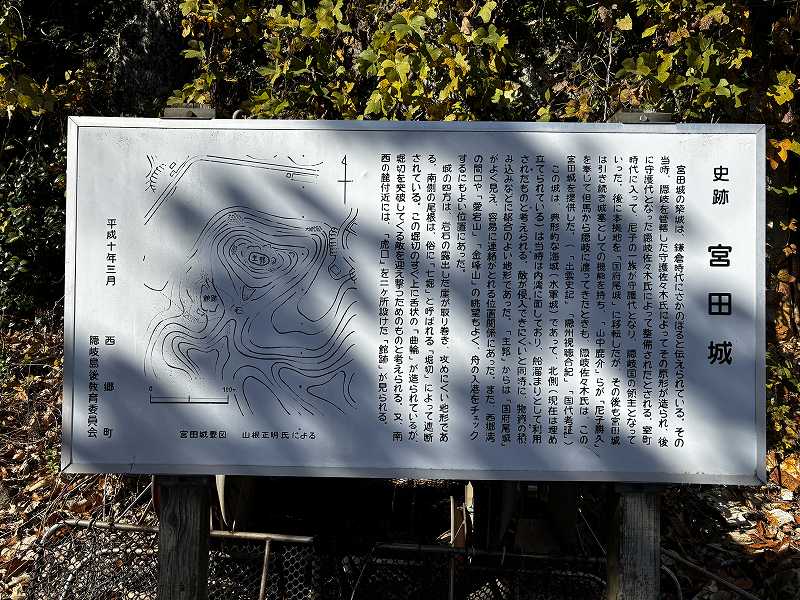 史跡 宮田城
宮田城の築城は、鎌倉時代にさかのぼると伝えられている。その
当時、隠岐を管轄した守護佐々木氏によってその原形が造られ、後
に守護代となった隠岐佐々木氏によって整備されたとされる。室町
時代に入って、尼子の一族が守護代となり、隠岐国の領主となって
いった。後に本拠地を「国府尾城」に移転したが、その後も宮田城
は引き続き城塞としての機能を持ち、「山中鹿介」らが「尼子勝久」
を奉じて但馬から隠岐に渡ってきたときも、隠岐佐々木氏は、この
宮田城を提供した。（「出雲史記」、「隠州視聴合記」、「国代考証」）
この城は、典形的な海城（水軍城）であって、北側（現在は埋め
立てられている）は当時は内湾に面しており、船溜まりとして利用
されたものと考えられる。敵が侵入できにくいと同時に、物資の積
み込みなどに都合のよい地形であった。「主郭」からは「国府尾城」
がよく見え、容易に連絡がとれる位置関係にあった。また、西郷湾
の開口や「愛宕山」、「金峰山」の眺望もよく、舟の入港をチェック
するにもよい位置にあった。
城の四方は、岩石の露出した崖が取り巻き、攻めにくい地形であ
る。南側の尾根は、俗に「七堀」と呼ばれる「堀切」によって遮断
されている。この堀切のすぐ上に舌状の「曲輪」が造られているが、
堀切を突破してくる敵を迎え撃つためのものと考えられる。又、南
西の麓付近には、「虎口」を二ヶ所設けた「館跡」が見られる。
主郭
館跡
0
100m
宮田城要図 山根正明氏による
平成十年三月
西郷町
隠岐島後教育委員会